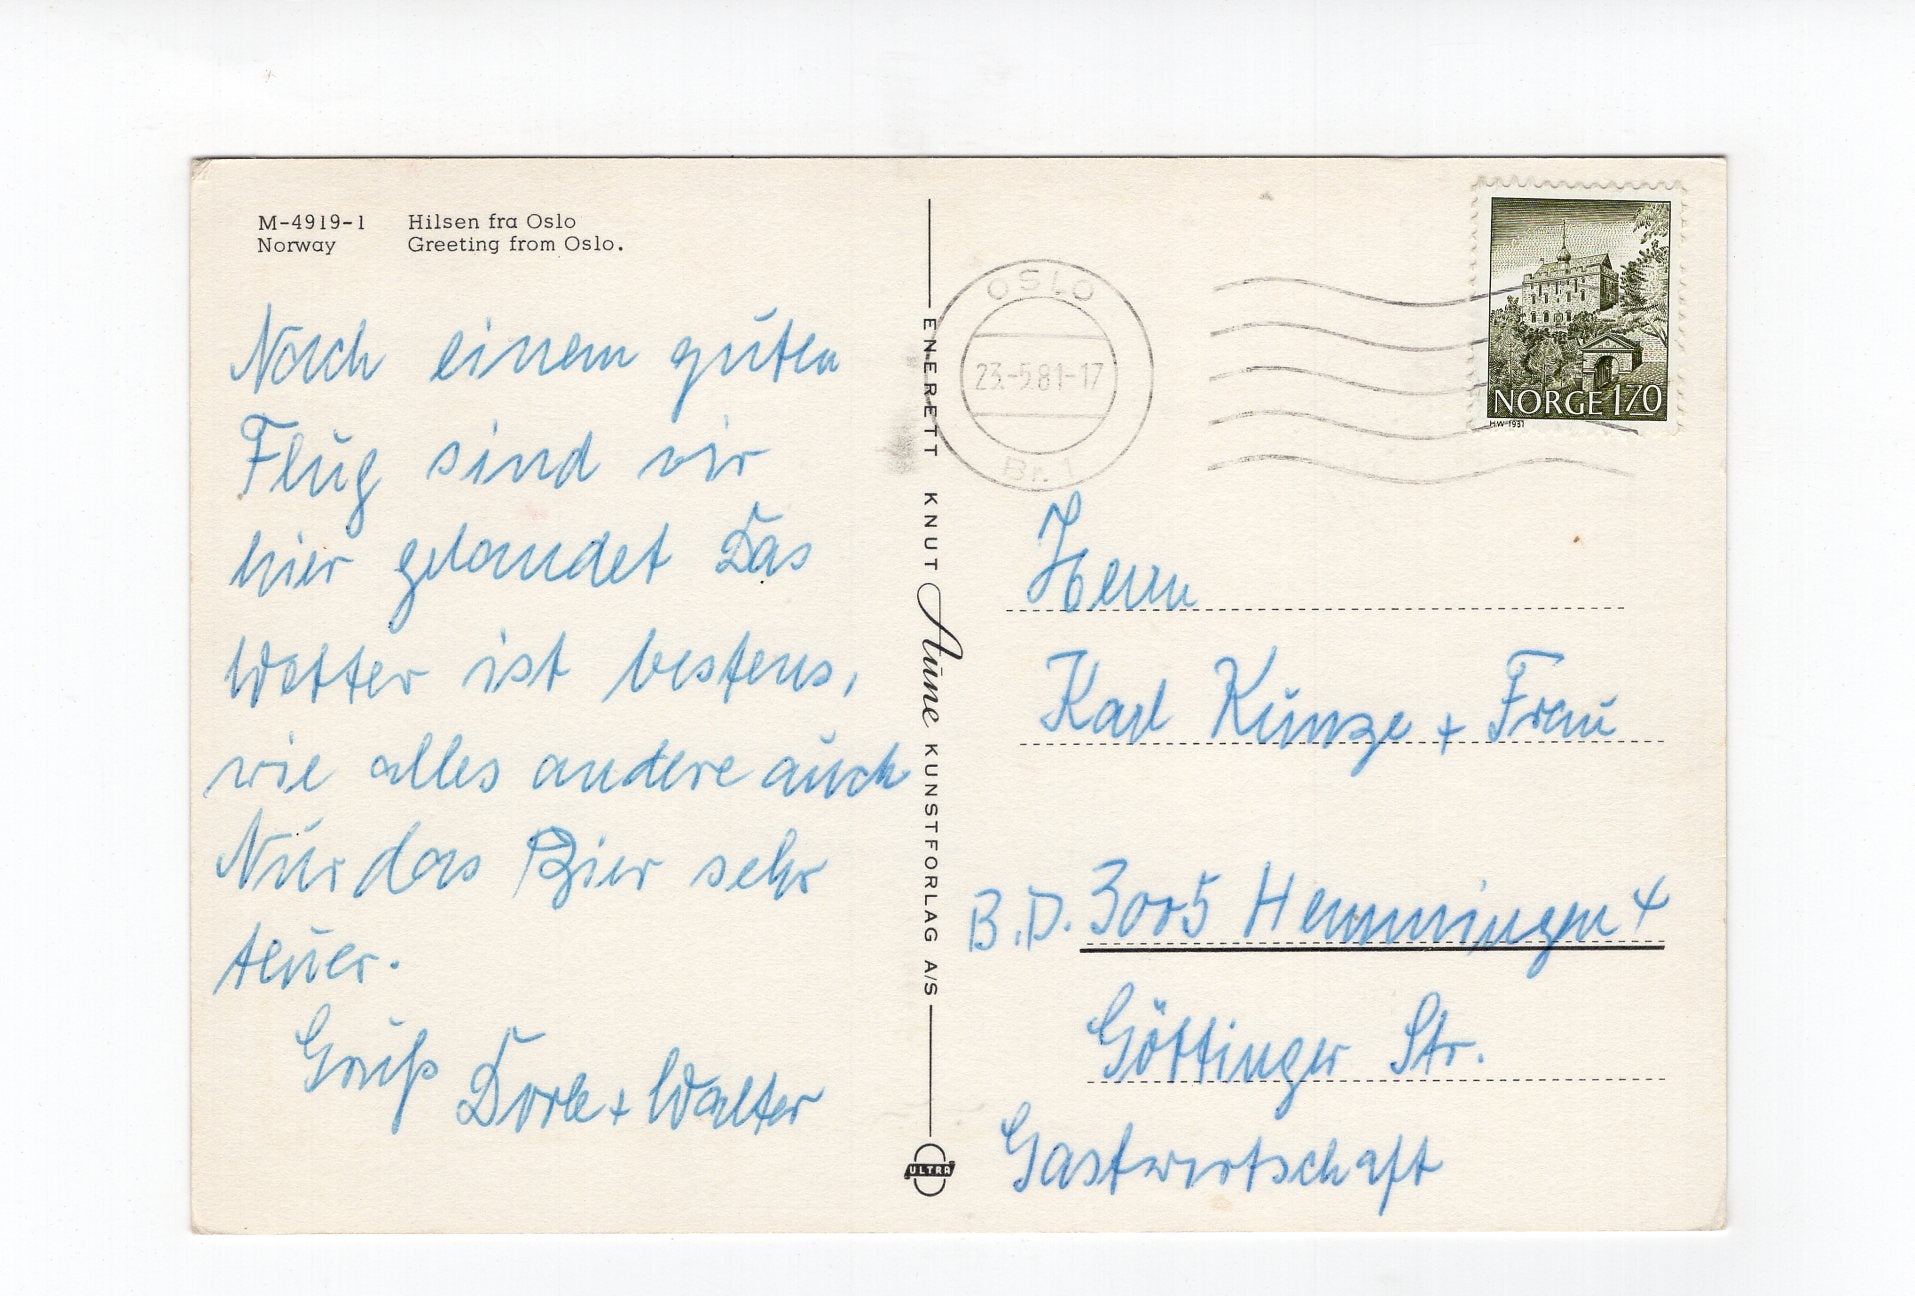 M-4919-1 Hilsen fra Oslo
Norway Greeting from Oslo.
Nach einem guten
Flug sind wir
hier gelandet Das
Wetter ist bestens,
wie alles andere auch
Nur das Bier sehr
teuer.
Gruß Dorle + Walter
ENERETT KNUT Aune KUNSTFORLAG A/S
ULTRA
OSLO
23.-5.81-17
Br. 1
NORGE 170
HW 1981
Herrn
Karl Kunze + Frau
B.D. 3005 Hemmingen 4
Göttinger Str.
Gastwirtschaft